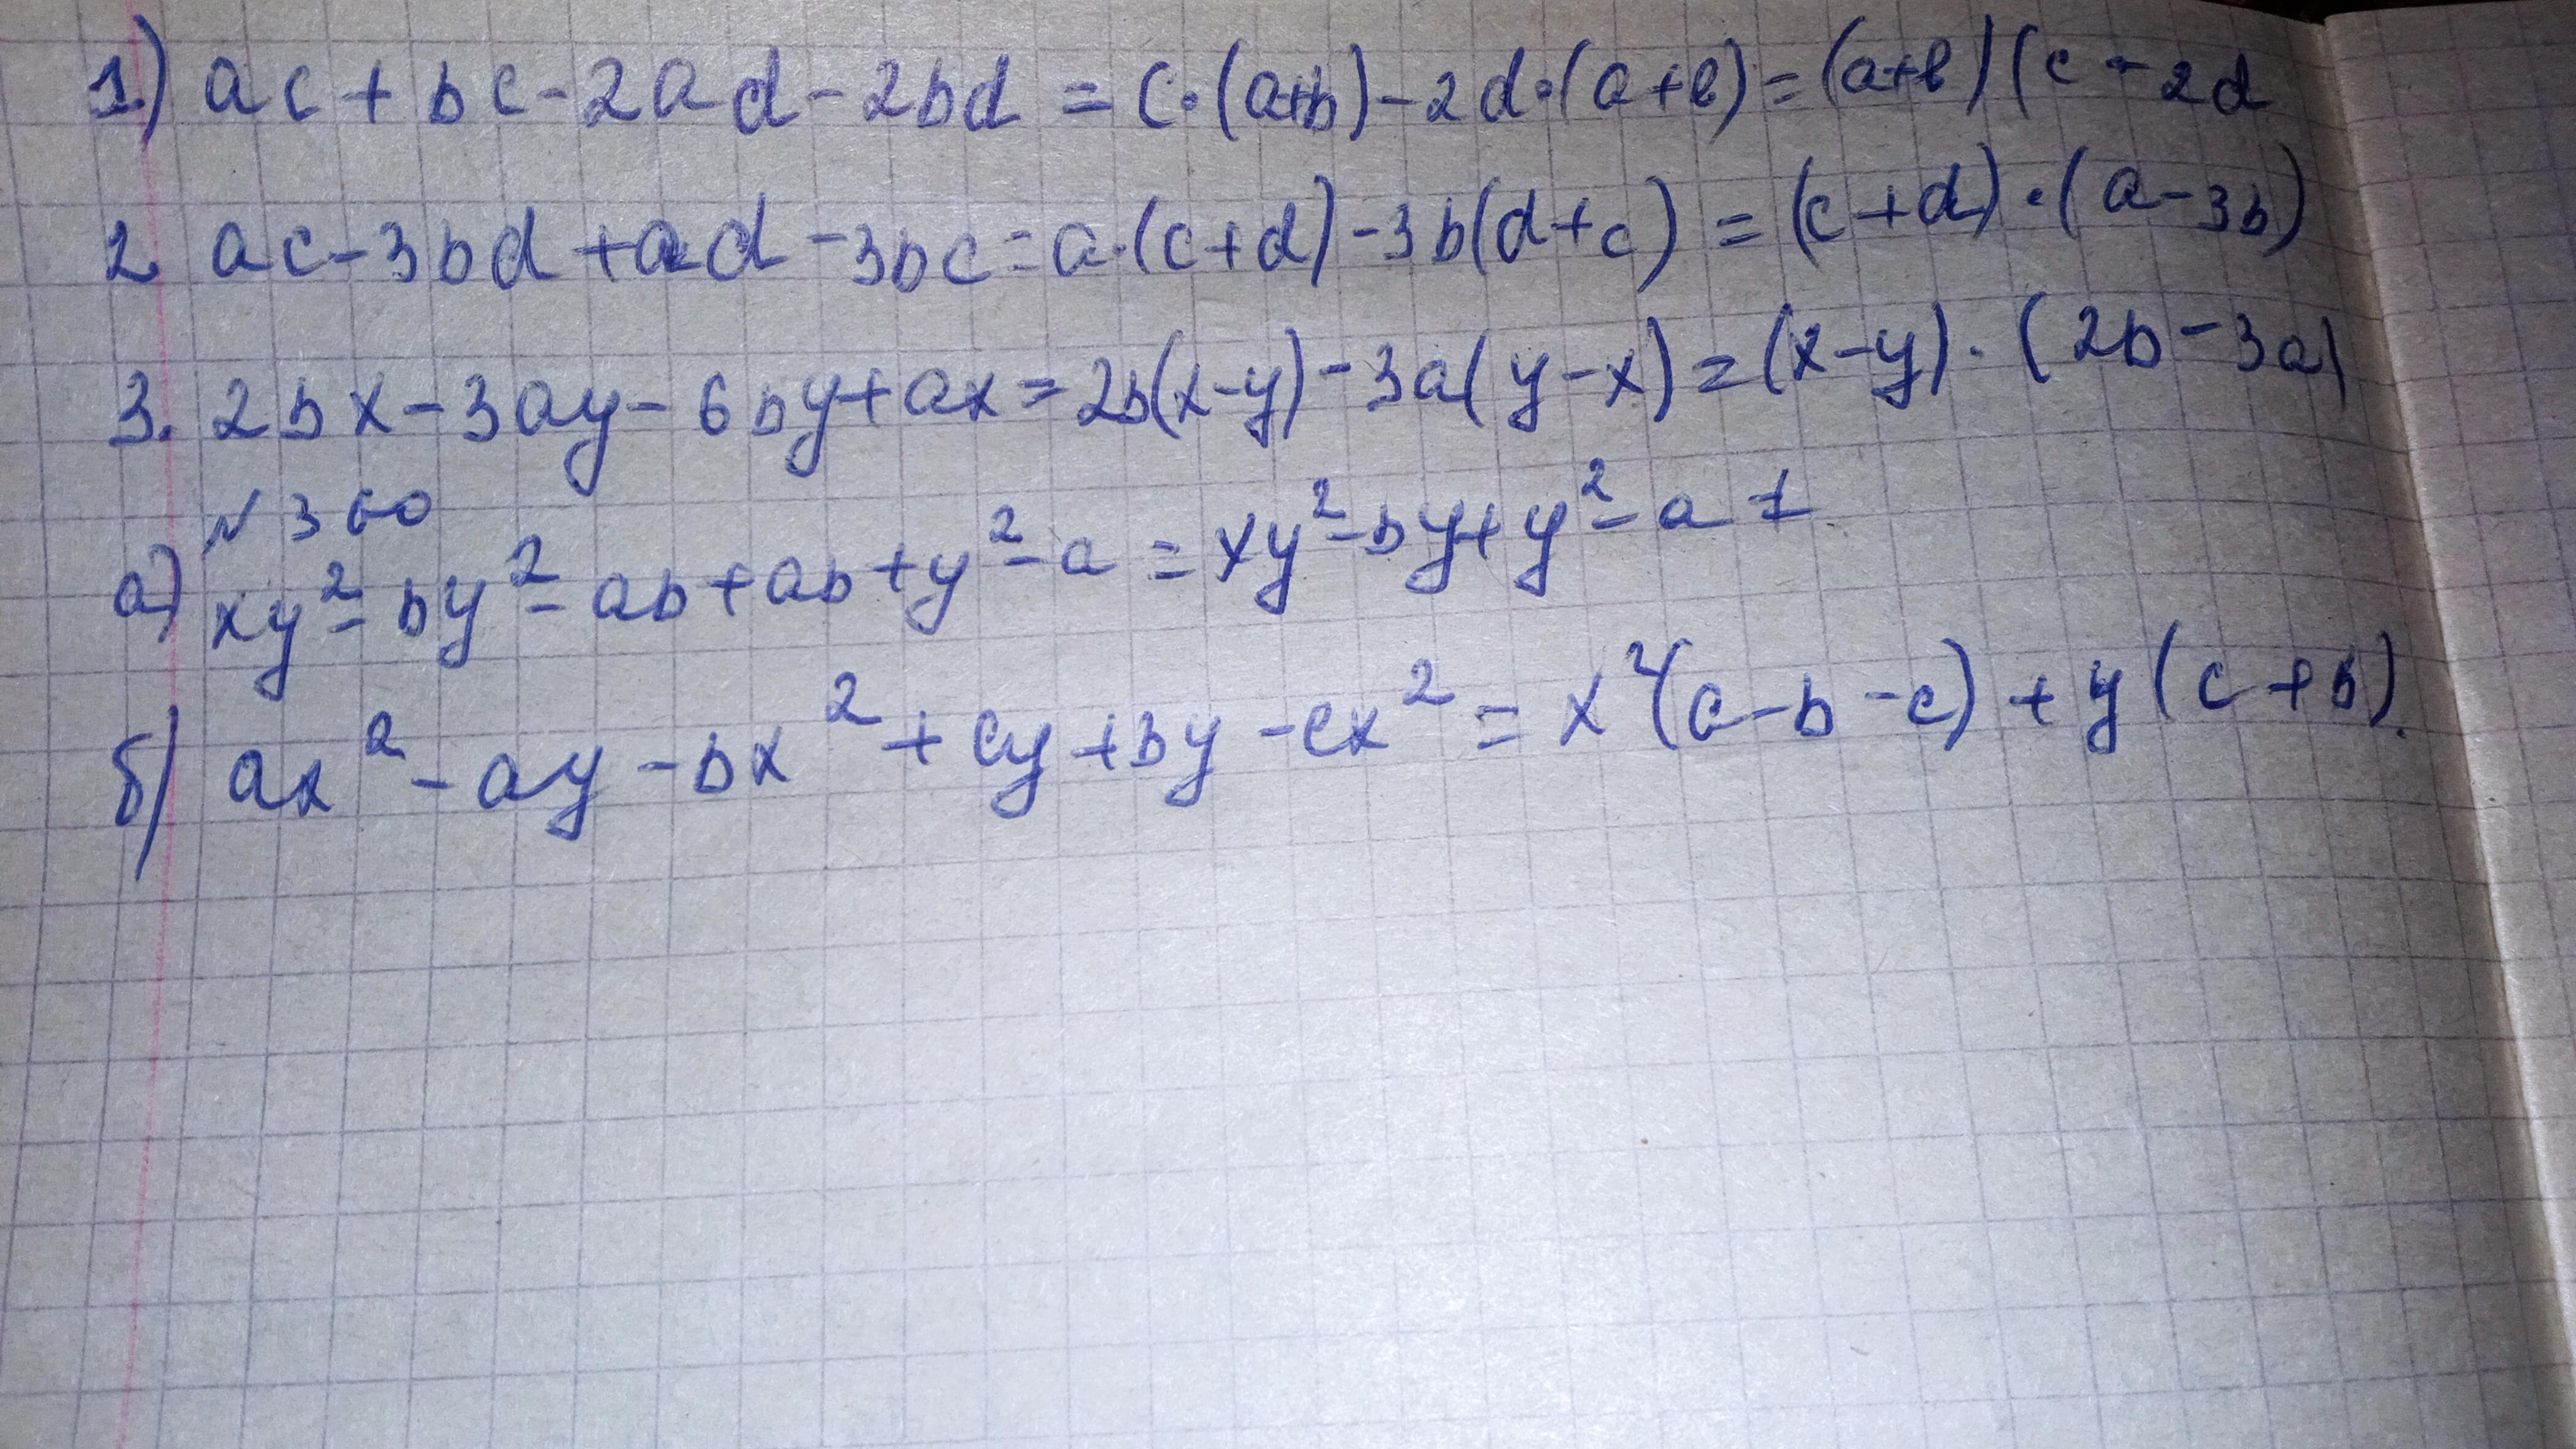 1.) ac + bc - 2ad - 2bd = c·(a+b) - 2d·(a+b) = (a+b)(c - 2d
2 ac - 3bd + ad - 3bc = a·(c+d) - 3b(d+c) = (c+d)·(a - 3b)
3. 2bx - 3ay - 6by + ax = 2b(x-y) - 3a(y-x) = (x-y)·(2b - 3a)
N 360
а) xy² - by² - ab + ab + y² - a = xy² - by + y² - a =
б) ax² - ay - bx² + cy + by - cx² = x²(a - b - c) + y(c + b).